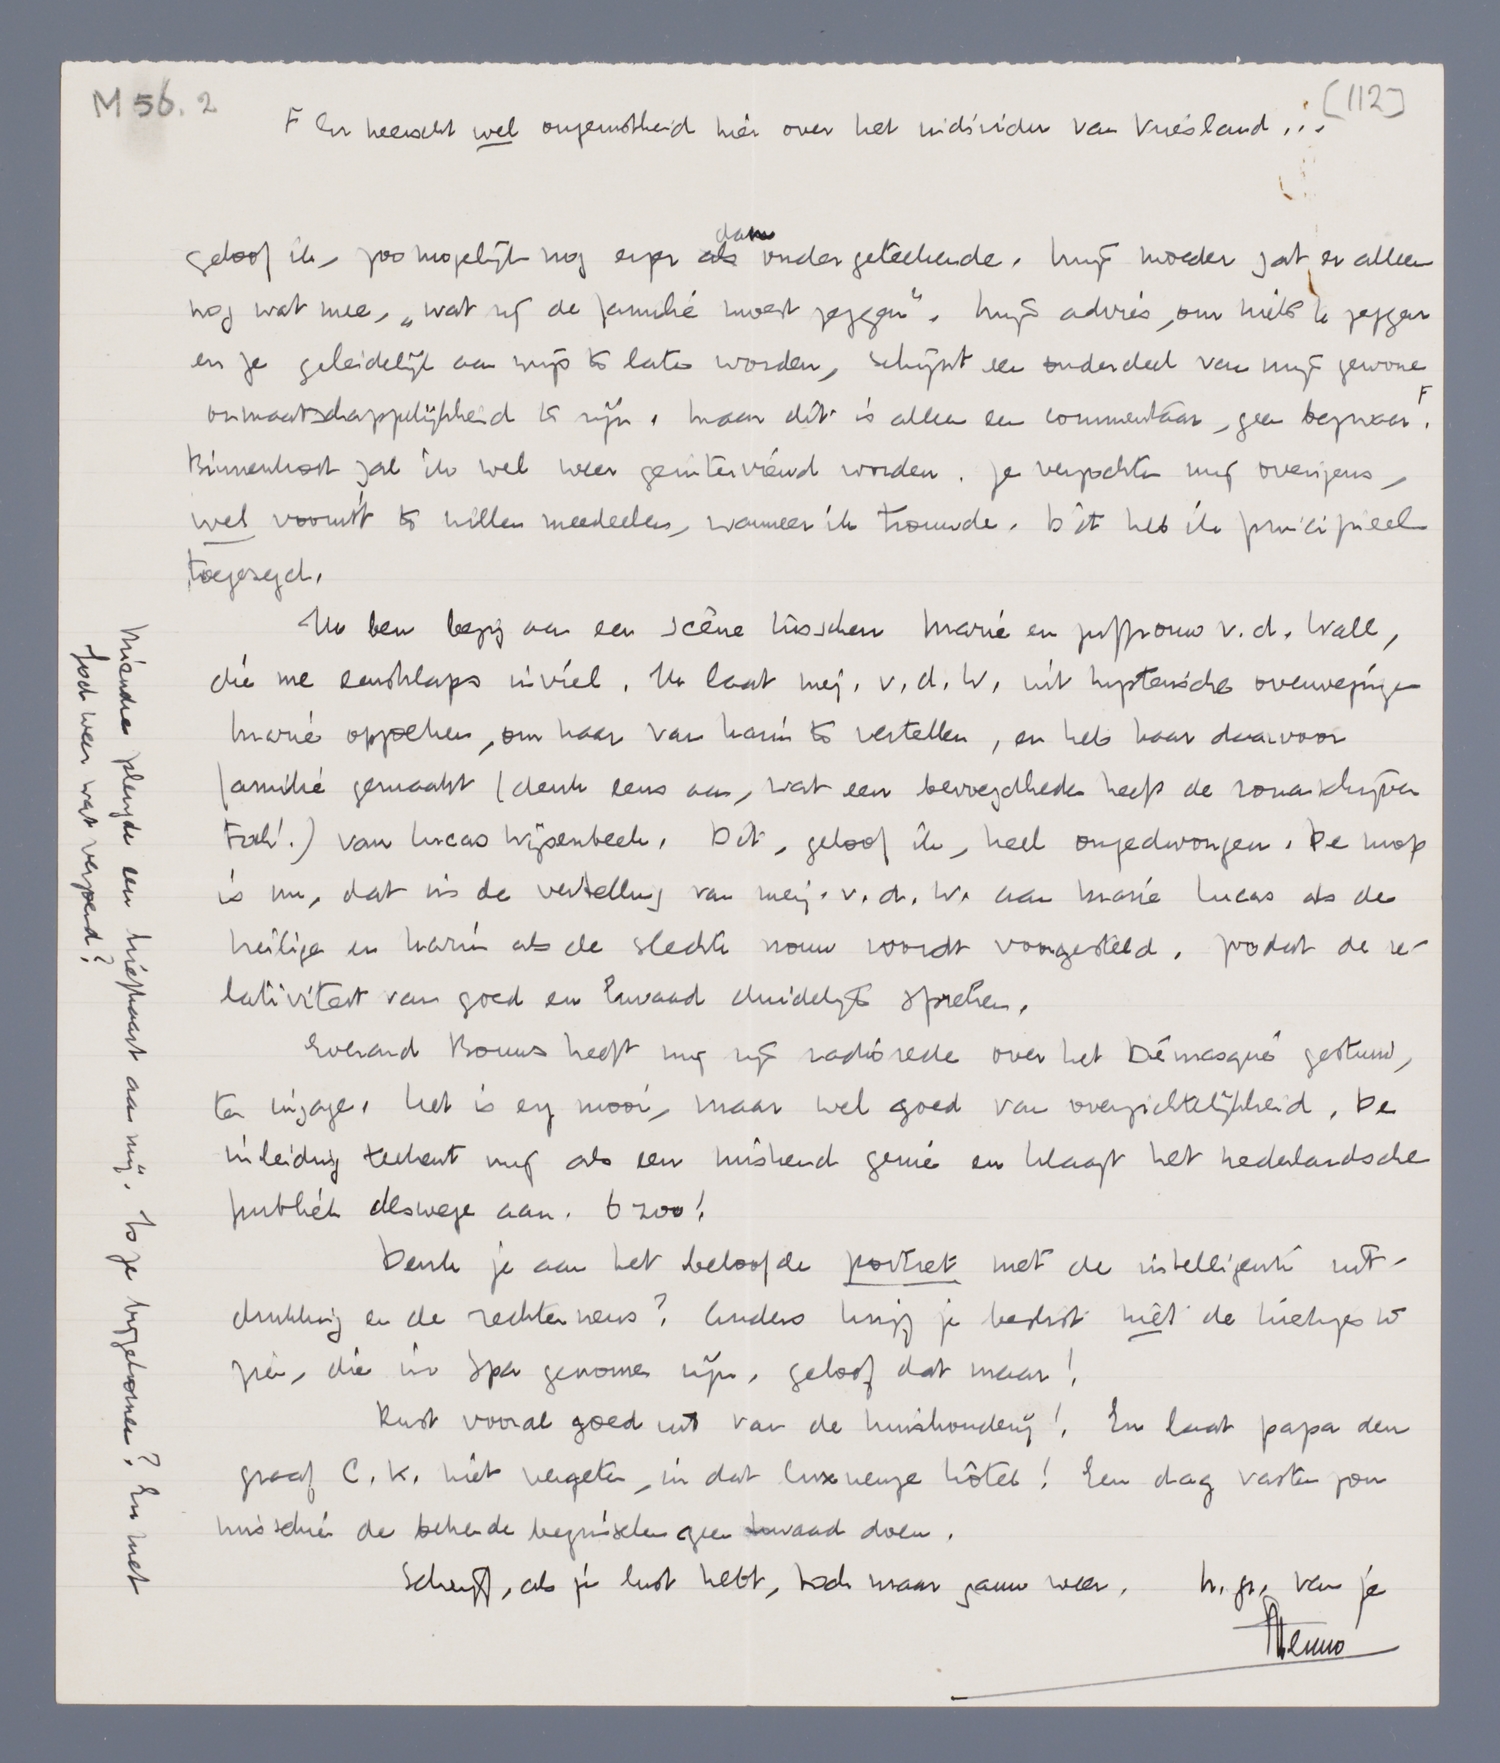 M 56. 2
[112]
F Er heerscht wel ongerustheid hier over het individu van Vriesland...
geloof ik, zoo mogelijk nog erger als dan ondergeteekende. Mijn moeder zat er alleen
nog wat mee, „wat zij de familie moest zeggen". Mijn advies, om niets te zeggen
en ze geleidelijk aan wijs te laten worden, schijnt een onderdeel van mijn gewone
onmaatschappelijkheid te zijn. Maar dit is alleen een commentaar, geen bezwaar F.
Binnenkort zal ik wel weer geïnterviewd worden. Ze verzochten mij overigens,
wel vooruit te willen meedeelen, wanneer ik trouwde. Dit heb ik principieel
toegezegd.
Ik ben bezig aan een scène tusschen Marie en juffrouw v.d. Wall,
die me eensklaps inviel. Ik laat mej. v.d.W. uit hysterische overwegingen
Marie opzoeken, om haar van Karin te vertellen, en heb haar daarvoor
familie gemaakt (denk eens aan, wat een bevoegdheden heeft de romanschrijver
toch!) van Lucas Wijzenbeek. Dit, geloof ik, heel ongedwongen. De mop
is nu, dat in de vertelling van mej. v.d.W. aan Marie Lucas als de
heilige en Karin als de slechte vrouw wordt voorgesteld, zoodat de re-
lativiteit van goed en kwaad duidelijk spreken.
Everard Bouws heeft mij zijn radiorede over het Démasqué gestuurd,
ter inzage. Het is erg mooi, maar wel goed van overzichtelijkheid. De
inleiding teekent mij als een miskend genie en klaagt het nederlandsche
publiek deswege aan. Bzoo!
Denk je aan het beloofde portret met de intelligente uit-
drukking en de rechte neus? Anders krijg je beslist niet de kiekjes te
zien, die in Spa genomen zijn, geloof dat maar!
Rust vooral goed uit van de huishouderij! En laat papa den
graaf C.K. niet vergeten, in dat luxueuze hôtel! Een dag vasten zou
misschien de bekende beginselen geen kwaad doen.
Schrijf, als je lust hebt, toch maar gauw weer. h. gr. van je
Menno
Vriendin pleegde een briefkaart aan mij. Is ze bijgekomen? En met
Jod weer wat verzoend?